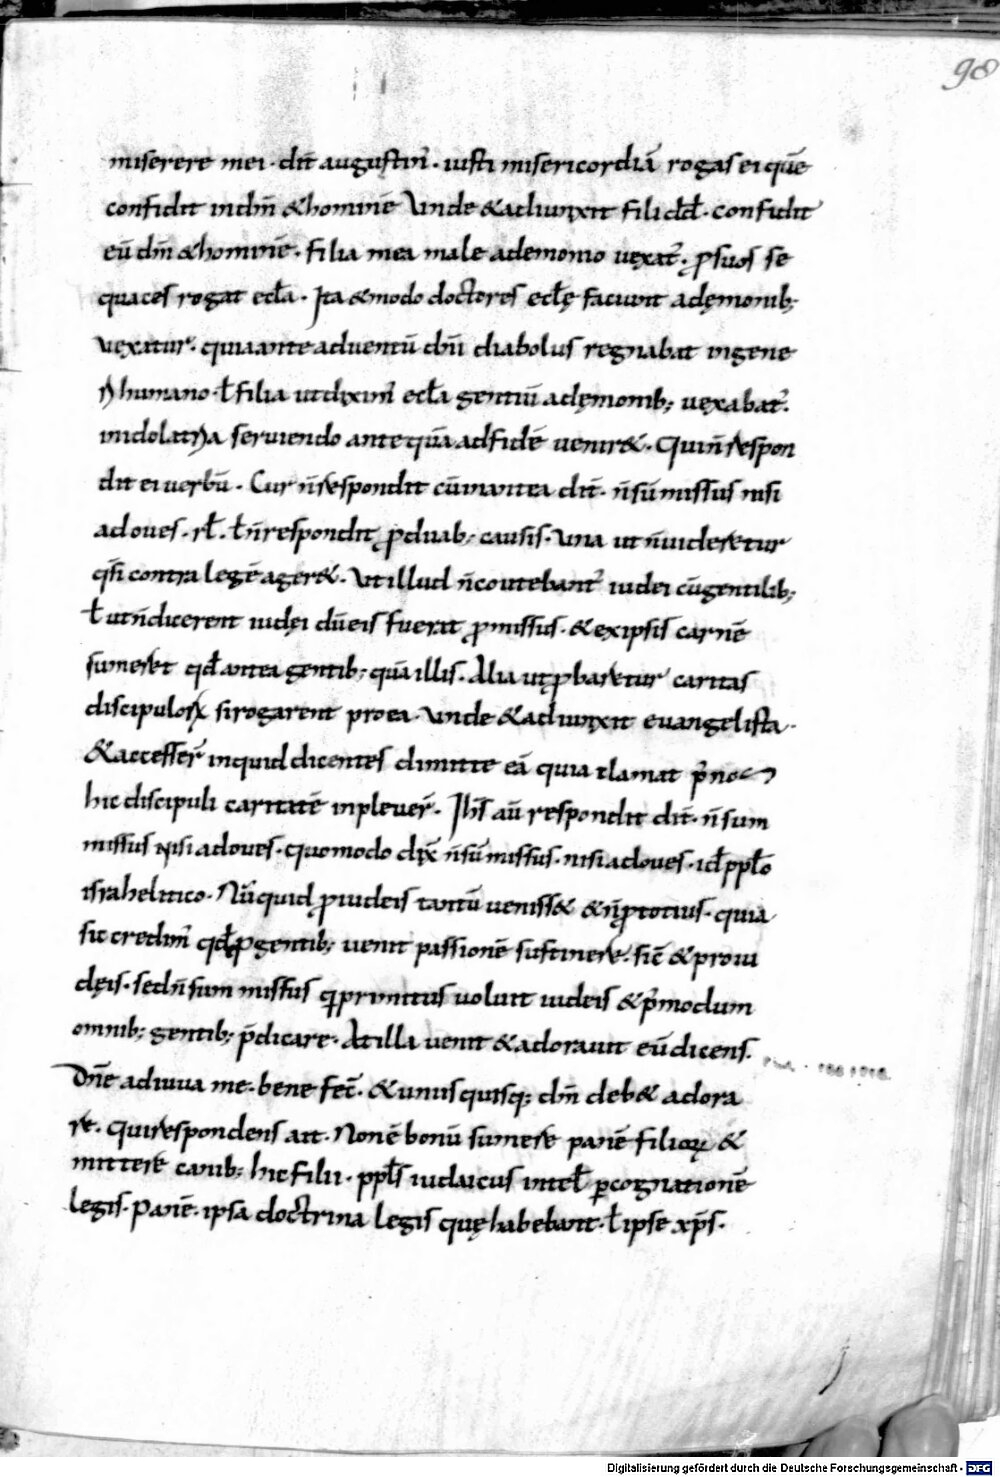 98
miserere mei · dic̄ augustin᷒ · iusti misericordiā rogas ei quē
confidit in dm̄ & hominē Unde & adiunxit fili dd̄ · confidit
eū dm̄ & hominē · filia mea male a demonio uexat᷒ · ꝓ suos se
quaces rogat eccl̄a · Ita & modo doctores eccl̄ę faciunt a dęmonib;
uexatur · quia ante aduentū dn̄i diabolus regnabat in gene
ꝝ humano · ł filia ut dixim᷒ eccl̄a gentiū a dęmonib; uexabat᷒ ·
in idolatria seruiendo ante quā ad fidē uenir& · Qui n̄ respon
dit ei uerbū · Cur n̄ respondit cū in antea dic̄ · n̄ sū missus nisi
ad oues · rł · ł n̄ respondit ꝓ duab; causis · Una ut n̄ uideretur
q̄si contra legē ager& · Ut illud n̄ coutebant᷒ iudei cū gentilib;
ł ut n̄ dicerent iudęi dū eis fuerit ꝓmissus · & ex ipsis carnē
sumeret qd̄ antea gentib; quā illis · Alia ut ꝓbaretur caritas
discipuloꝝ si rogarent pro ea · Unde & adiunxit euangelista ·
& accesser̄ inquid dicentes dimitte eā quia clamat p᷒ nos
hic discipuli caritatē inpleuer̄ · Ihs̄ aū respondit dic̄ · n̄ sum
missus nisi ad oues · quomodo dix̄ n̄ sū missus · nisi ad oues · id̄ ppło
israhelitico · Nūquid ꝓ iudeis tantū ueniss& & n̄ ꝓ totius · quia
sic credim᷒ qd̄ ꝓ gentib; uenit passionē sustinere · sic̄ & pro iu
dęis · sed n̄ sum missus q̄ primitus uoluit iudeis & p᷒modum
omnib; gentib; p̄dicare · At illa uenit & adorauit eū dicens ·
Dn̄e adiuua me · bene fec̄ · & unusquisq; dm̄ deb& adora
re · Qui respondens ait · Non ē bonū sumere panē filioꝝ &
mittere canib; hic filii · ppłs iudaicus intel̄ ꝑ cognationē
legis · Panē · ipsa doctrina legis quę habebant · ł ipse xp̄s ·
Digitalisierung gefördert durch die Deutsche Forschungsgemeinschaft - DFG